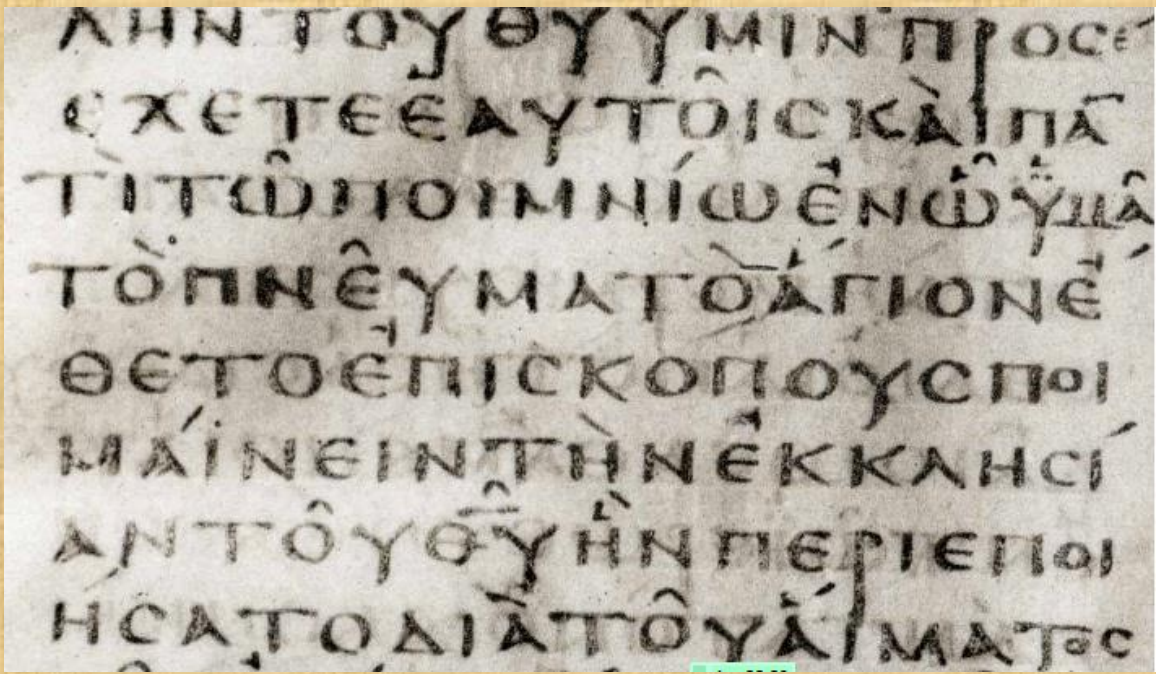 ΛΗΝΤΟΥΘΥΥΜΙΝΠΡΟCΕ
ΕΧΕΤΕΕΑΥΤΟΙCΚΑΙΠΑ̅
ΤΙΤΩΠΟΙΜΝΙΩΕΝΩΫΜΑ
ΤΟΠΝΕΥΜΑΤΟΑΓΙΟΝΕ
ΘΕΤΟΕΠΙCΚΟΠΟΥCΠΟΙ
ΜΑΙΝΕΙΝΤΗΝΕΚΚΛΗCΙ
ΑΝΤΟΥΘ̅Υ̅ΗΝΠΕΡΙΕΠΟΙ
ΗCΑΤΟΔΙΑΤΟΥΑΙΜΑΤΟC